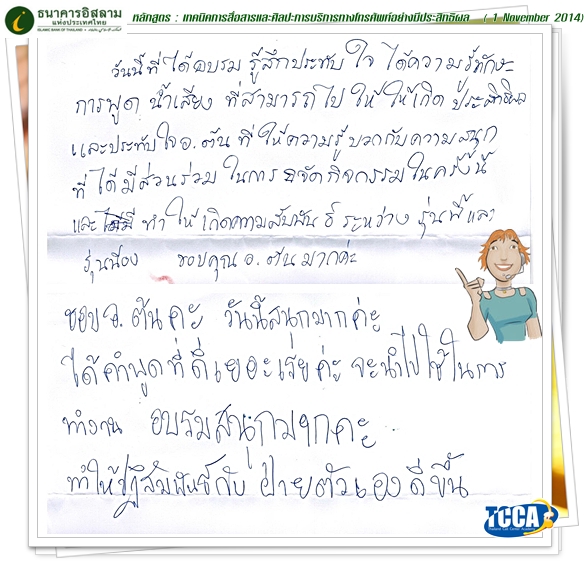 ธนาคารอิสลาม
แห่งประเทศไทย
ISLAMIC BANK OF THAILAND
หลักสูตร : เทคนิคการสื่อสารและศิลปะการบริการทางโทรศัพท์อย่างมีประสิทธิผล ( 1 November 2014)
วันนี้ที่ได้อบรม รู้สึกประทับใจ ได้ความรู้ทักษะ
การพูด น้ำเสียง ที่สามารถไป ให้ ให้เกิด ประสิทธิผล
และประทับใจ อ.ต้น ที่ให้ความรู้ บวกกับความสนุก
ที่ได้มีส่วนร่วม ในการ จัดกิจกรรมในครั้งนี้
และ ทำให้เกิดความสัมพันธ์ ระหว่าง รุ่นพี่และ
รุ่นน้อง ขอบคุณ อ.ต้นมากค่ะ
ชอบ อ.ต้นคะ วันนี้สนุกมากค่ะ
ได้คำพูดที่ดีเยอะเลยค่ะ จะนำไปใช้ในการ
ทำงาน อบรมสนุกมากคะ
ทำให้ปฏิสัมพันธ์กับ ฝ่ายตัวเองดีขึ้น
TCCA
Thailand Call Center Academy